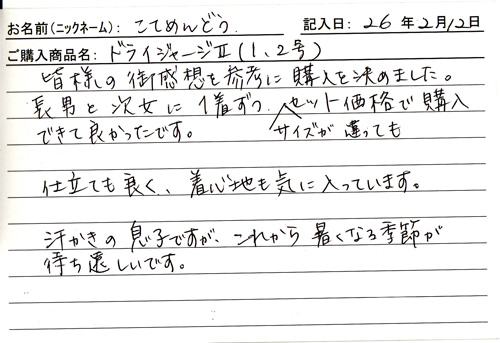 お名前(ニックネーム): こてめんどう 記入日: 26年2月12日
ご購入商品名: ドライジャージⅡ(1、2号)
皆様の御感想を参考に購入を決めました。
長男と次女に1着ずつ、セット価格で購入
できて良かったです。 サイズが違っても
仕立ても良く、着心地も気に入っています。
汗かきの息子ですが、これから暑くなる季節が
待ち遠しいです。